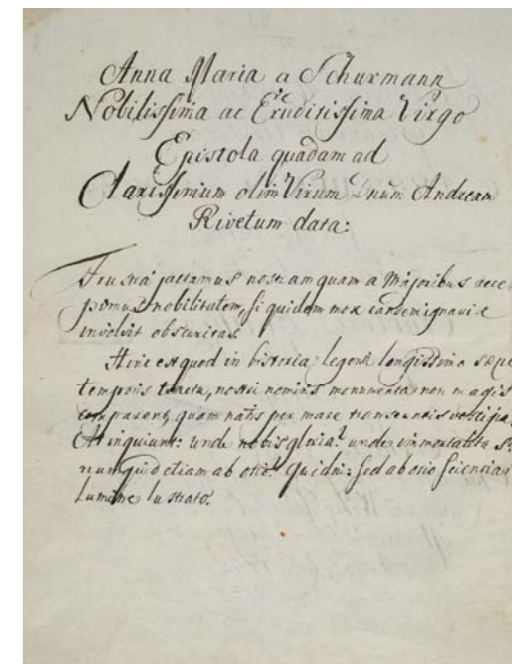 Anna Maria a Schurmann
Nobilissima ac Eruditissima Virgo
Epistola quadam ad
Clarissimum olim Virum Dnum Andream
Rivetum data:
Frustra jactamus nostram quam a Majoribus acce-
pimus nobilitatem, si quidem mox eandem ignaviæ
involvit obscuritas.
Hinc est quod in historia legenti longissimo sæpe
temporis tractu, nostri nominis monumenta non magis
compareant, quam navis per mare transeuntis vestigia.
At inquiunt: unde nobis gloria? unde immortalitas?
num quid etiam ab otio? quidni: sed ab otio scientiar
lumine lustrato.